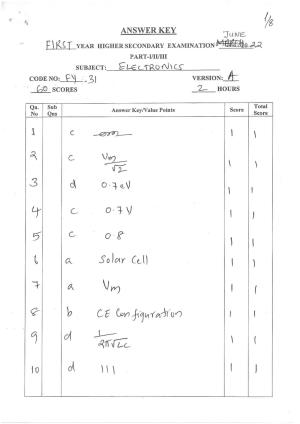 1/8
ANSWER KEY
FIRST YEAR HIGHER SECONDARY EXAMINATION JUNE 2022
PART-I/II/III
SUBJECT: ELECTRONICS
CODE NO: FY .31 VERSION: A
60 SCORES 2 HOURS
Qn. No Sub Qns Answer Key/Value Points Score Total Score
1 c 1 1
2 c Vm/√2 1 1
3 d 0.7eV 1 1
4 c 0.7V 1 1
5 c 0.8 1 1
6 a Solar Cell 1 1
7 a Vm 1 1
8 b CE Configuration 1 1
9 d 1/2π√LC 1 1
10 d 111 1 1